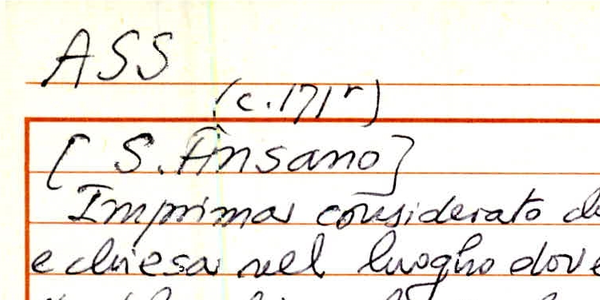 ASS
(c.171r)
[S. Ansano]
Imprima considerato
e chiesa nel luogho dove